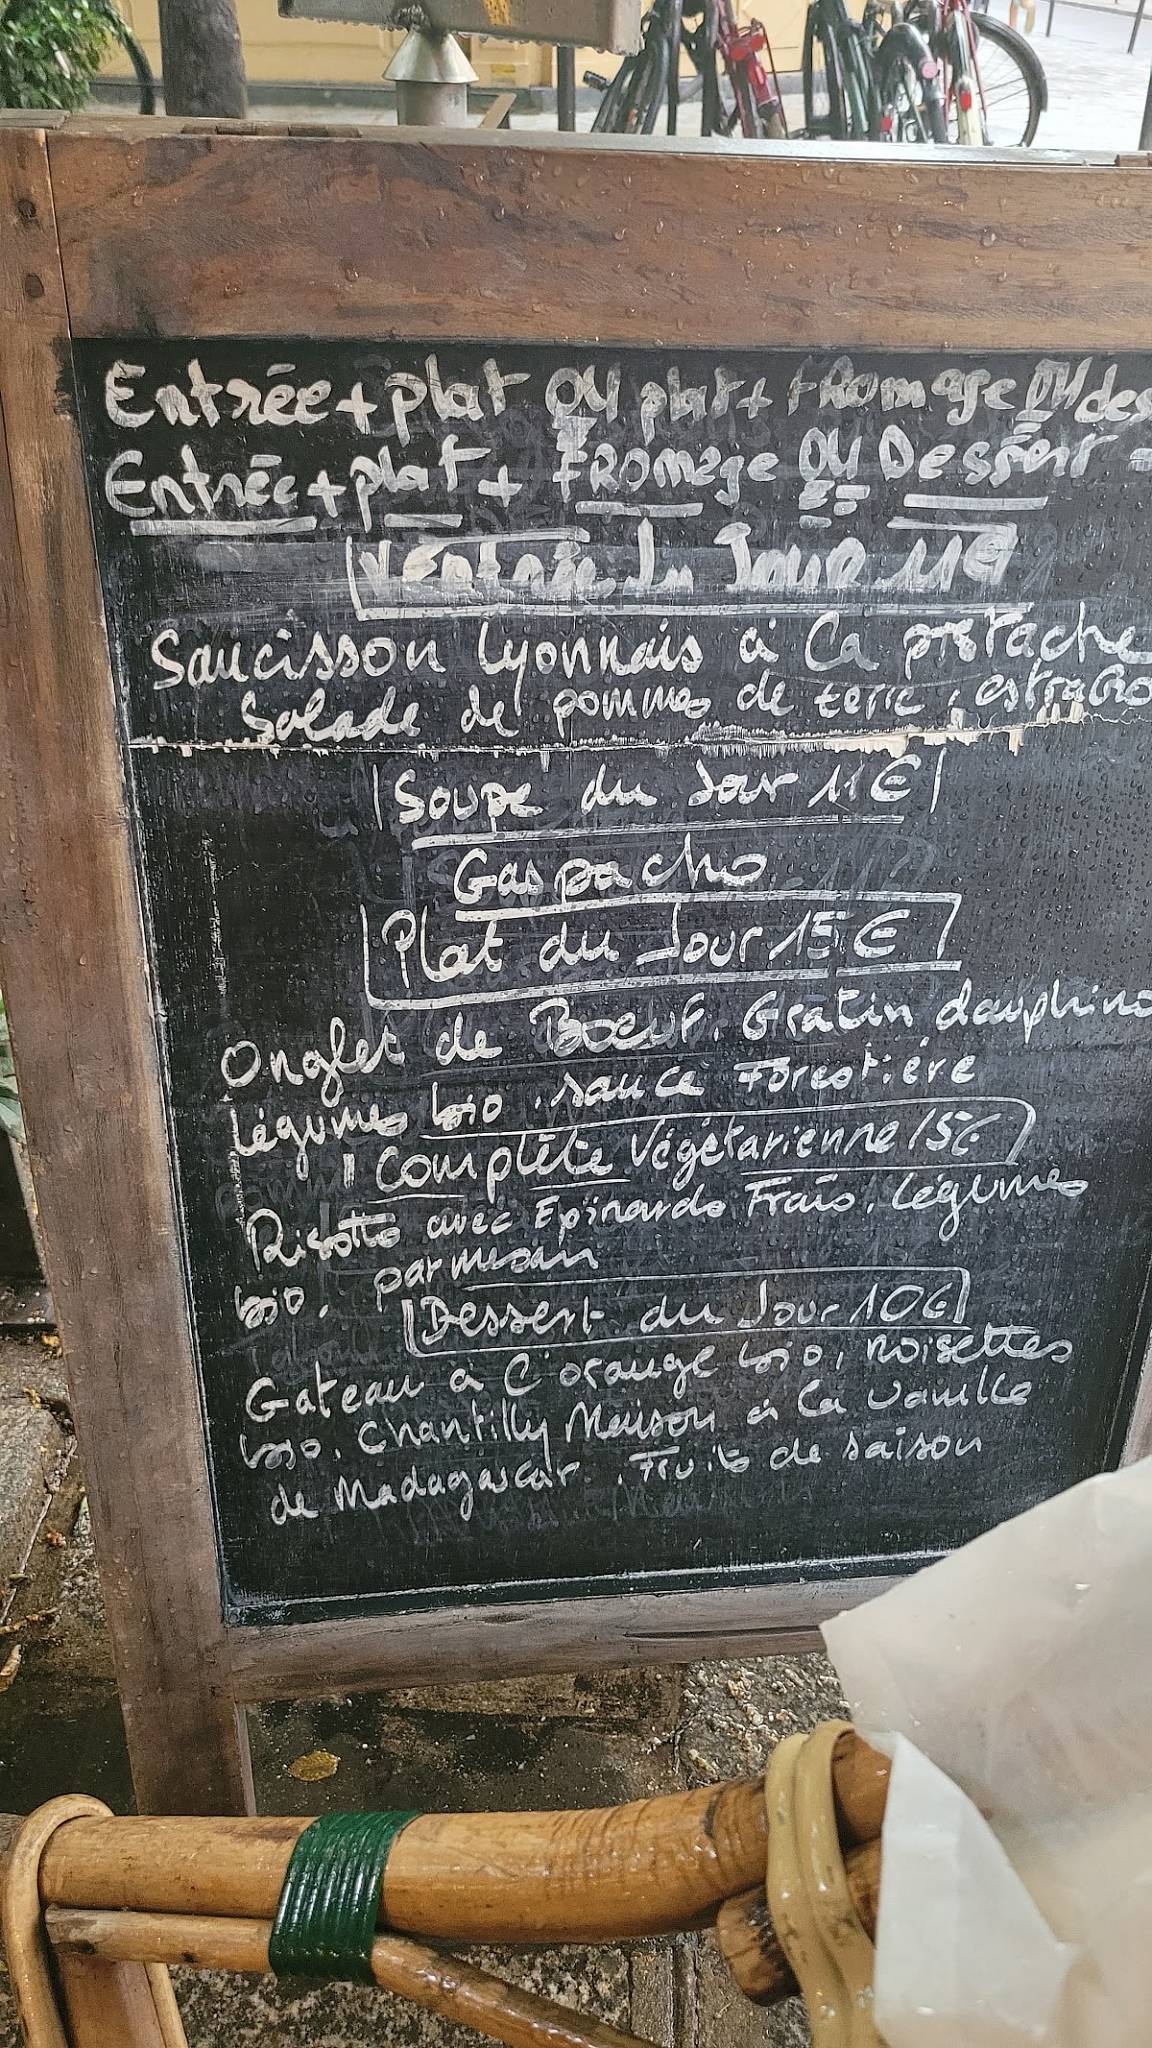 Entrée + plat OU plat + fromage OU des
Entrée + plat + Fromage OU Dessert =
L'Entrée du Jour 11€
Saucisson Lyonnais à la pistache
Salade de pommes de terre, estrago
Soupe du Jour 11€
Gaspacho
Plat du Jour 15€
Onglet de Boeuf. Gratin dauphino
légumes bio. sauce Forestière
Complète Végétarienne 15€
Risotto avec Epinards Frais. légumes
bio. parmesan
Dessert du Jour 10€
Gateau à l'orange bio, noisettes
bio. Chantilly Maison à la Vanille
de Madagascar. Fruits de saison